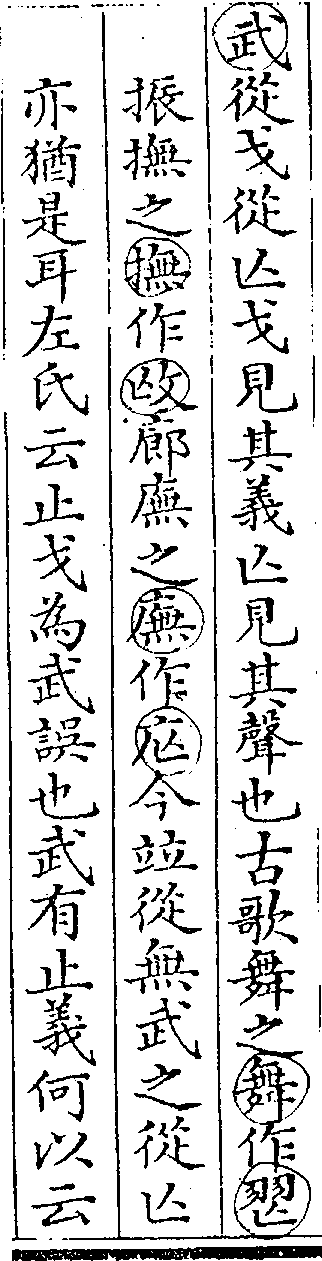 武從戈從亾戈見其義亾見其聲也古歌舞之舞作𦐀
振撫之撫作㪅廊廡之廡作㡆今竝從無武之從亾
亦猶是耳左氏云止戈為武誤也武有止義何以云